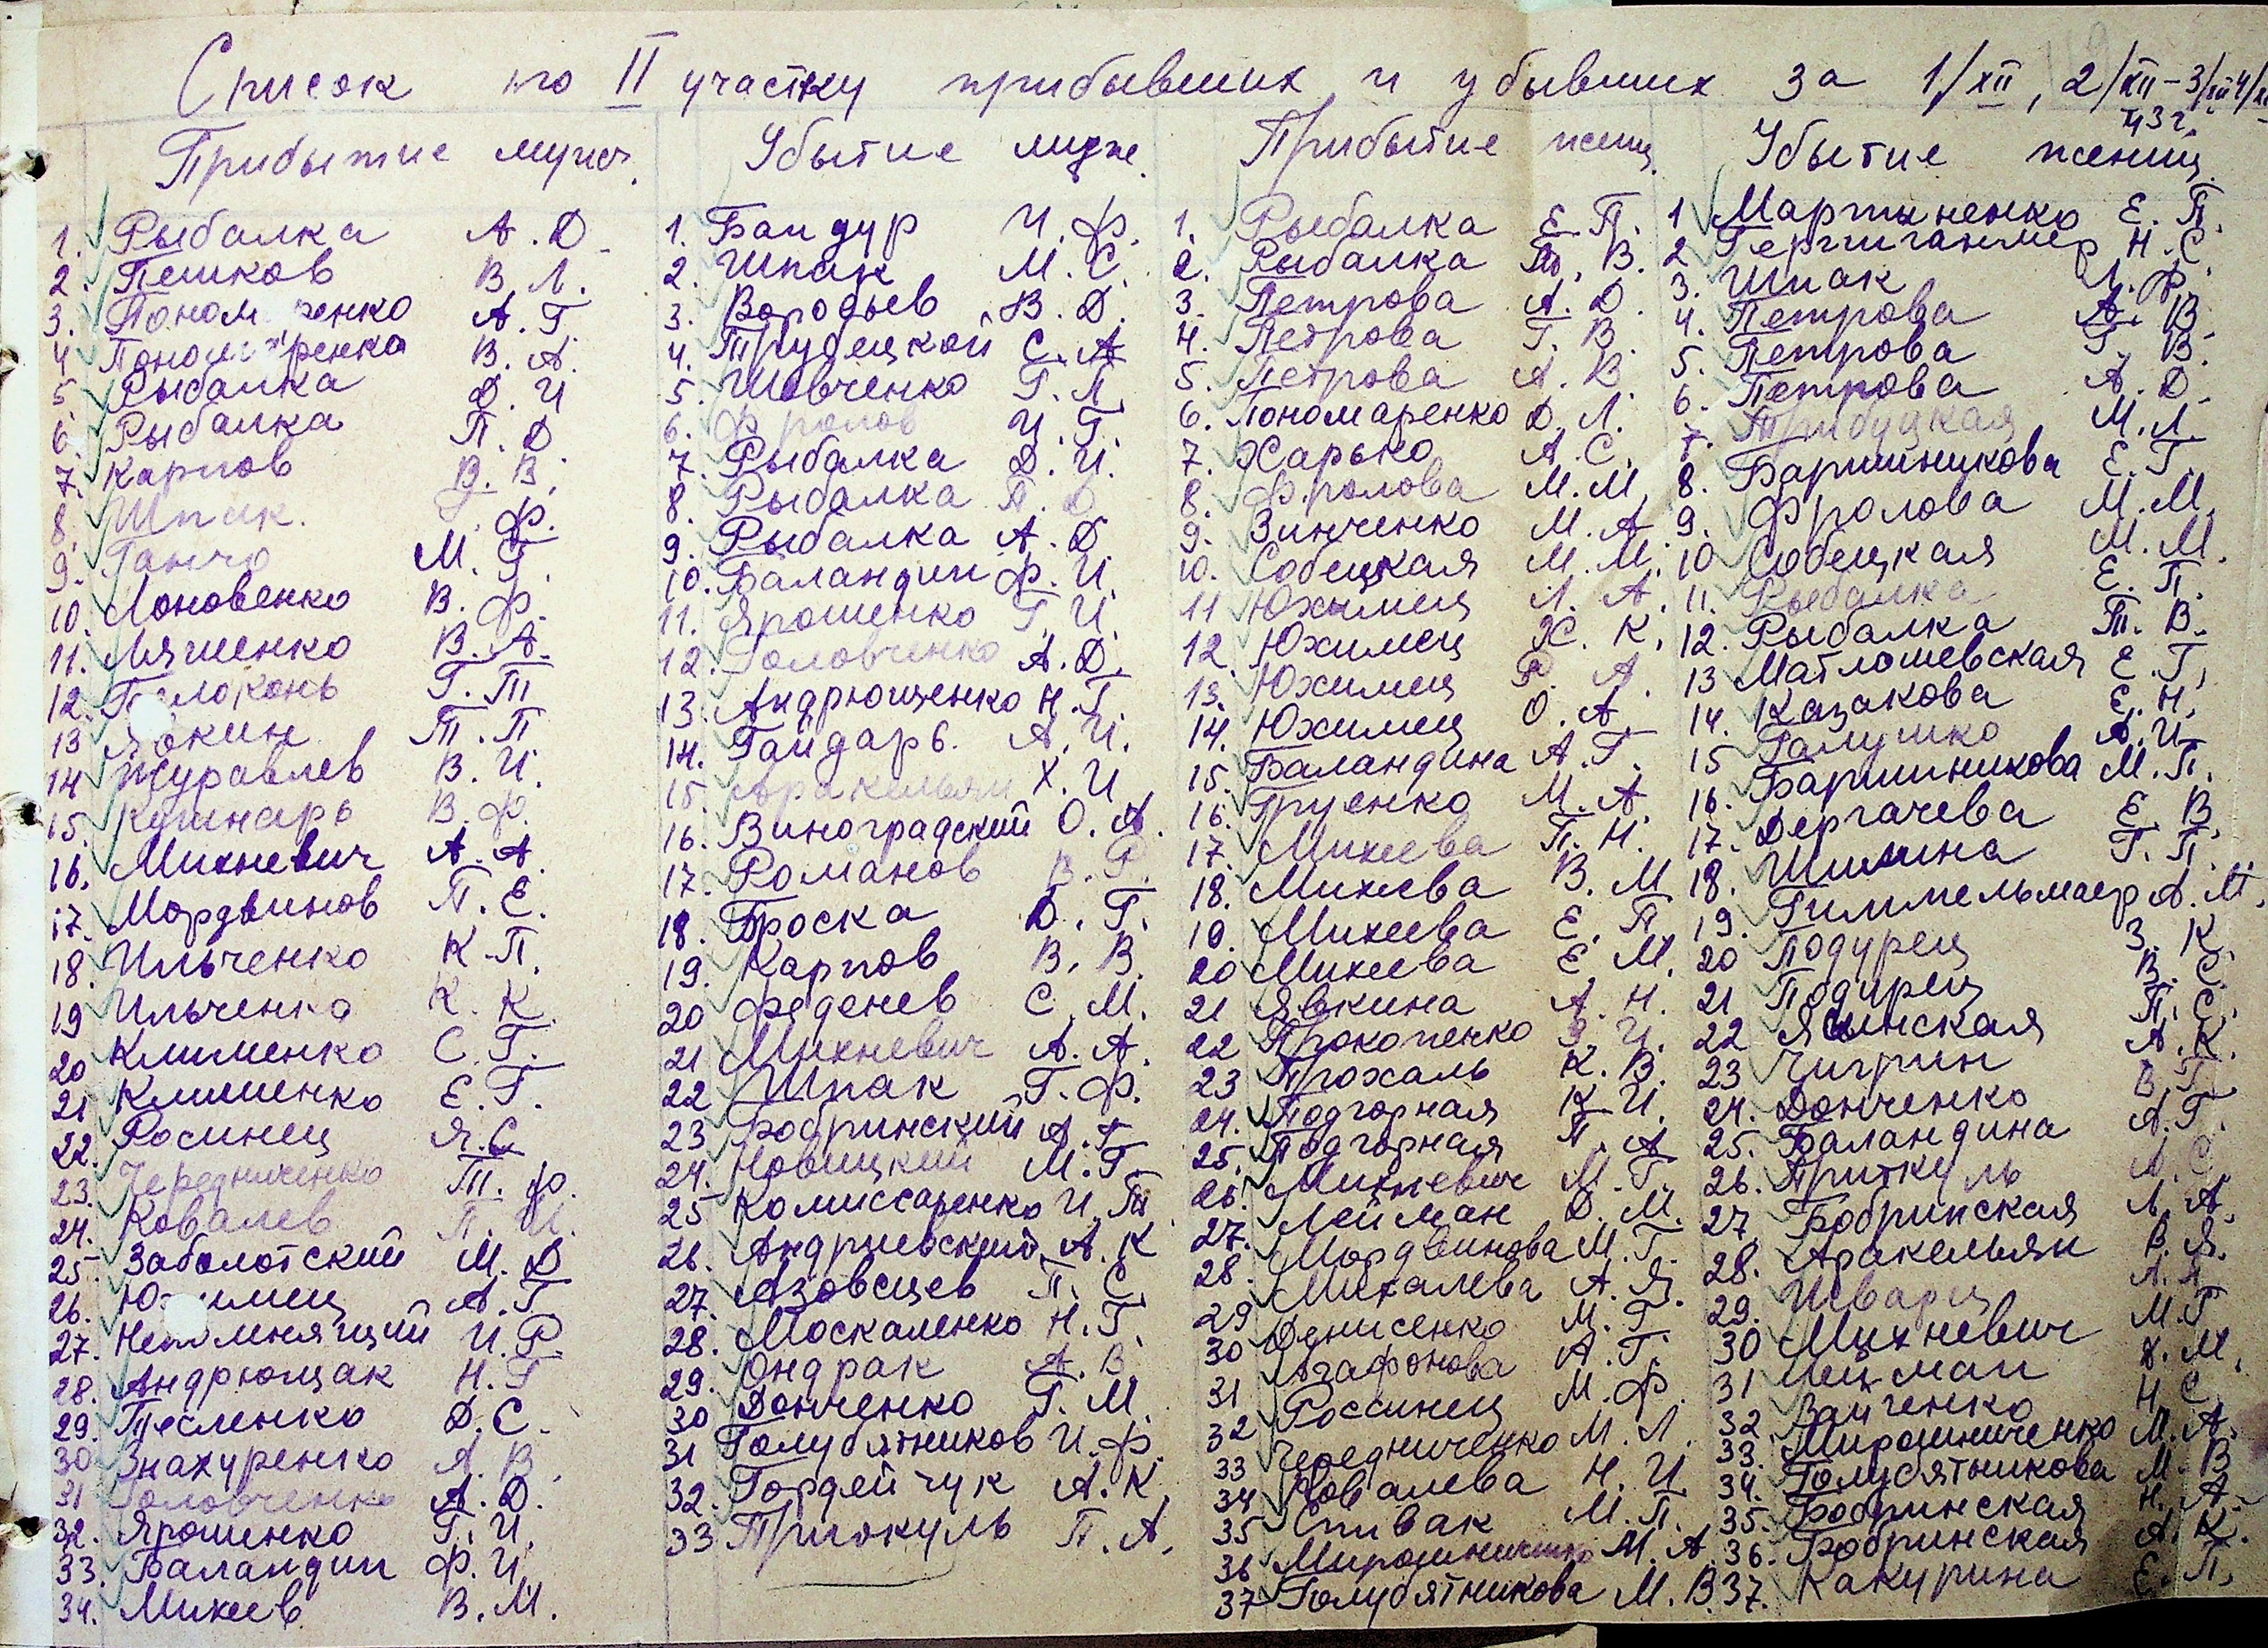 Список по II участку прибывших и убывших за 1/XII, 2/XII – 3/XII 4/XII
43 г.
Прибытие мужч.
1. Рыбалка А. Д.
2. Пешков В. Л.
3. Поном ренко А. Г
4 Пономаренко В. А.
5 Рыбалка Д. И
6. Рыбалка П. Д
7. Карпов В. В.
8. Шпак. Ф.
9. Ганчо М. Г.
10. Лоновенко В. Ф.
11. Ляшенко В. А.
12. Белоконь Г. Т
13 Явкин Т. П
14 Журавлев В. И.
15. Кушнарь В. Ф.
16. Михневич А. А.
17. Мордвинов П. Е.
18. Ильченко К П.
19 Ильченко К. К.
20 Клименко С. Г.
21 Клименко Е. Г.
22. Росинец Я. С
23. Чередниченко Т. Ф.
24. Ковалев П. И.
25. Заболотский М. Д
26. Юхимец А. Г.
27. Непомнящий И. Р.
28. Андрющак Н. Г
29. Тесленко Д. С.
30 Знахуренко А. В.
31 Головченко А. Д.
32. Ярошенко Г. И.
33. Баландин Ф. И.
34. Михеев В. М.
Убытие мужч.
1. Бандур И. Ф.
2. Шпак М. С.
3. Воробьев В. Д.
4. Трубецкой С. А
5. Шевченко Г. Л.
6. Фролов И. Г.
7. Рыбалка Д. И.
8. Рыбалка П. Д.
9. Рыбалка А. Д.
10. Баландин Ф. И.
11. Ярошенко Г. И.
12. Головченко А. Д.
13. Андрющенко Н. Г.
14. Гайдарь. А. И.
15. Аракельян Х. И
16. Виноградский О. А.
17. Романов В. Р.
18. Броска Д. Г.
19. Карпов В. В.
20 Феденев С. М.
21 Михневич А. А.
22 Шпак Г. Ф.
23 Бобринский А. Г.
24. Новицкий М. Г.
25 Комиссаренко И. Т
26. Андриевский А. К
27. Азовсцев П. С.
28. Москаленко Н. Г.
29. Ондрак А. В.
30 Донченко Г. М.
31 Голубятников И. Ф.
32. Гордейчук А. К.
33 Притокуль П. А.
Прибытие женщ.
1. Рыбалка Е. П.
2. Рыбалка Т. В.
3. Петрова А. Д.
4. Петрова Г. В.
5. Петрова А. В
6. Пономаренко Д. Л.
7. Харько А. С.
8. Фролова М. М.
9. Зинченко М. А.
10. Собецкая М. М.
11 Юхимец Л. А.
12. Юхимец Ж. К.
13. Юхимец Р. А.
14. Юхимец О. А.
15. Баландина А. Г.
16. Груенко М. А.
17. Михеева П. Н.
18. Михеева В. М
19. Михеева Е. П.
20 Михеева Е М.
21 Явкина А. Н.
22 Прокопенко З. И.
23 Прохаль К. В.
24. Подгорная К. И.
25. Подгорная П. А
26. Михневич М. Г.
27. Лейман Д. М.
28. Мордвинова М. Г.
29 Михалева А. Я.
30 Денисенко М. Г
31 Агафонова А. Г.
32 Россинец М. Ф.
33 Чередниченко М. Л.
34 Ковалева Н. И.
35 Спивак М. П.
36 Мирошниченко М. А
37 Голубятникова М. В.
Убытие женщ.
1 Мартыненко Е. П.
2 Н. С.
3. Шпак Л. Ф.
4. Петрова А. В
5. Петрова Г. В.
6. Петрова А. Д.
7. Трибуцкая М. Л.
8. Баришникова Е. Г.
9. Фролова М. М.
10 Собецкая М. М.
11. Рыбалка Е. П.
12. Рыбалка Т. В.
13 Матлошевская Е. Г.
14. Казакова Е. Н.
15 Галушко А. И
16. Баришникова М. П.
17. Дергачева Е. В.
18. Шишина Г. П.
19. Гиммельмаер А. М.
20 Подурец З. К.
21 Подурец В. С.
22 Ясынская П. С.
23 Чигрин А. К.
24. Донченко В. Г.
25. Баландина А. Г.
26. Приткуль А. С
27. Бобринская Л. А.
28. Аракельян В. Я.
29. Шварц Л. Л
30 Михневич М. Г
31 Лейман Д. М.
32. Зайченко Н С
33. Мирошниченко М. А.
34. Голубятникова М. В
35. Бобринская Н. А.
36. Бобринская А. К.
37. Какурина Е. П.